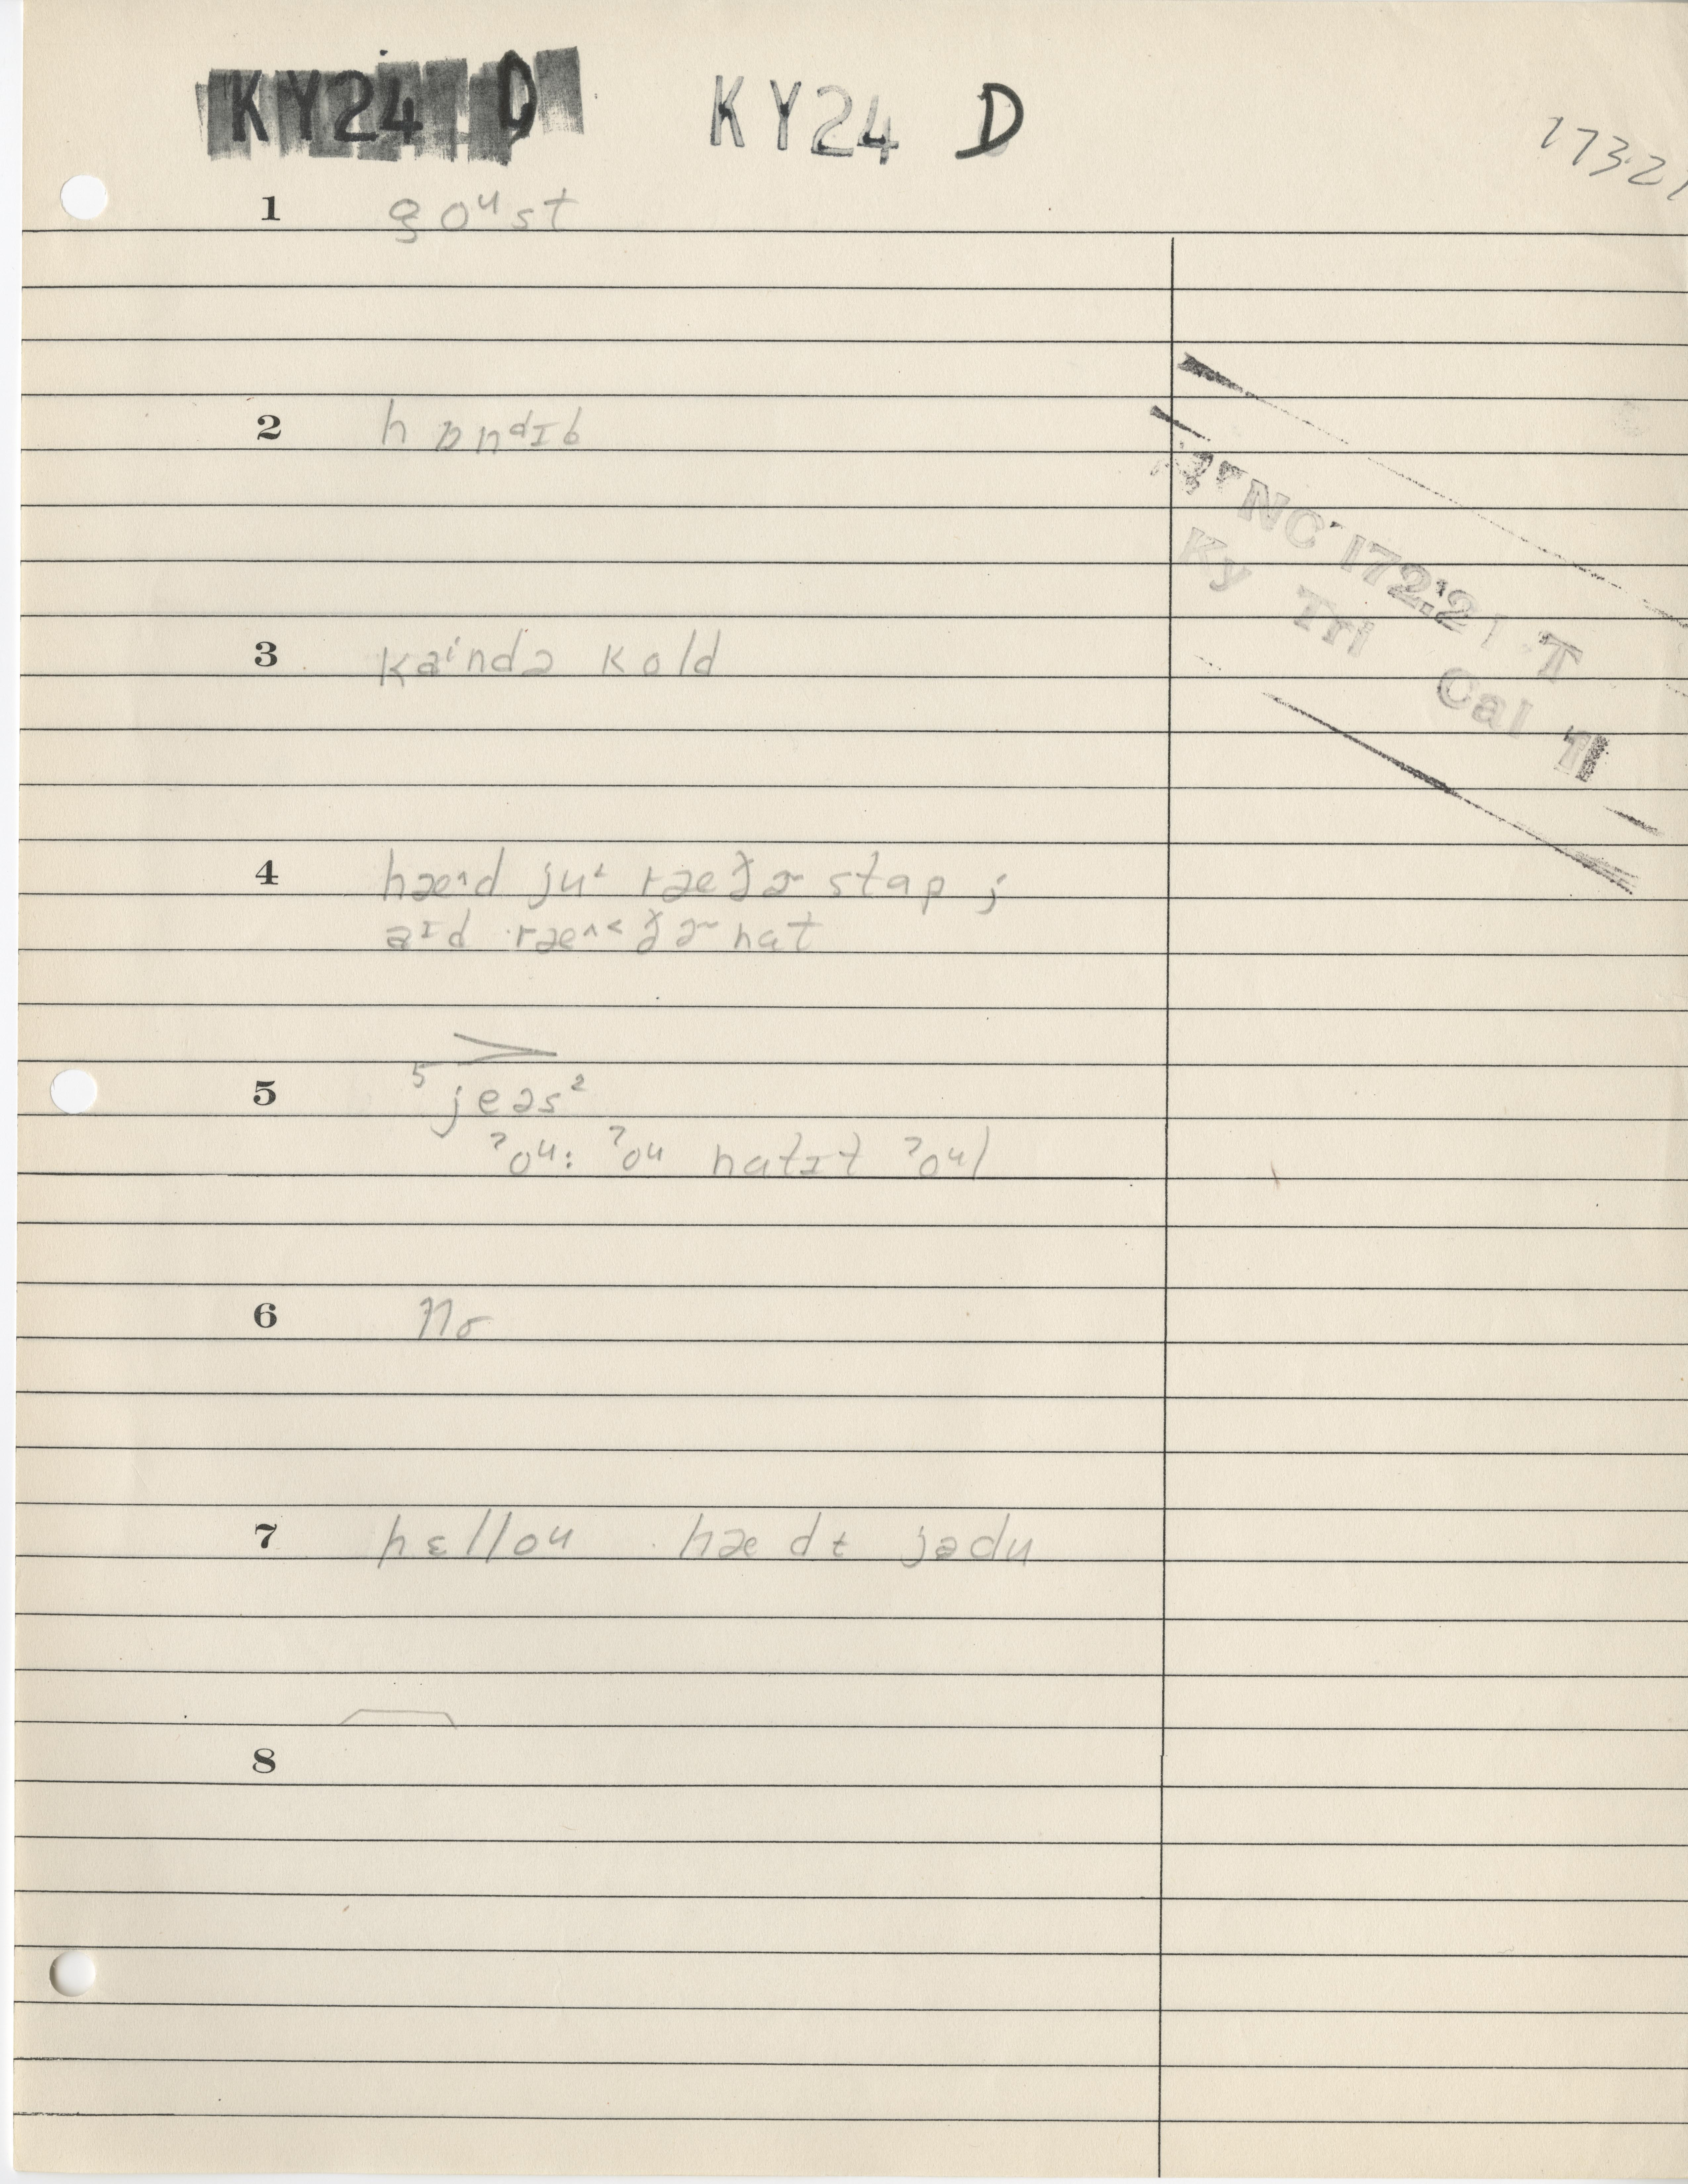 KY24 D KY24 D
173.21
1 goᵘst
2 hɒnᵈɪb
3 kaⁱndə kold
4 hæ^d juᶻ ræðɚ stap ;
aɪd ræ^<ðɚ nat
5 ⁵jeəs²
ˀou: ˀou natɪt ˀoul
6 No
7 hɛllou hæ dɪ jədu
8
NC 172.21 T
Ky Tri Cal 11